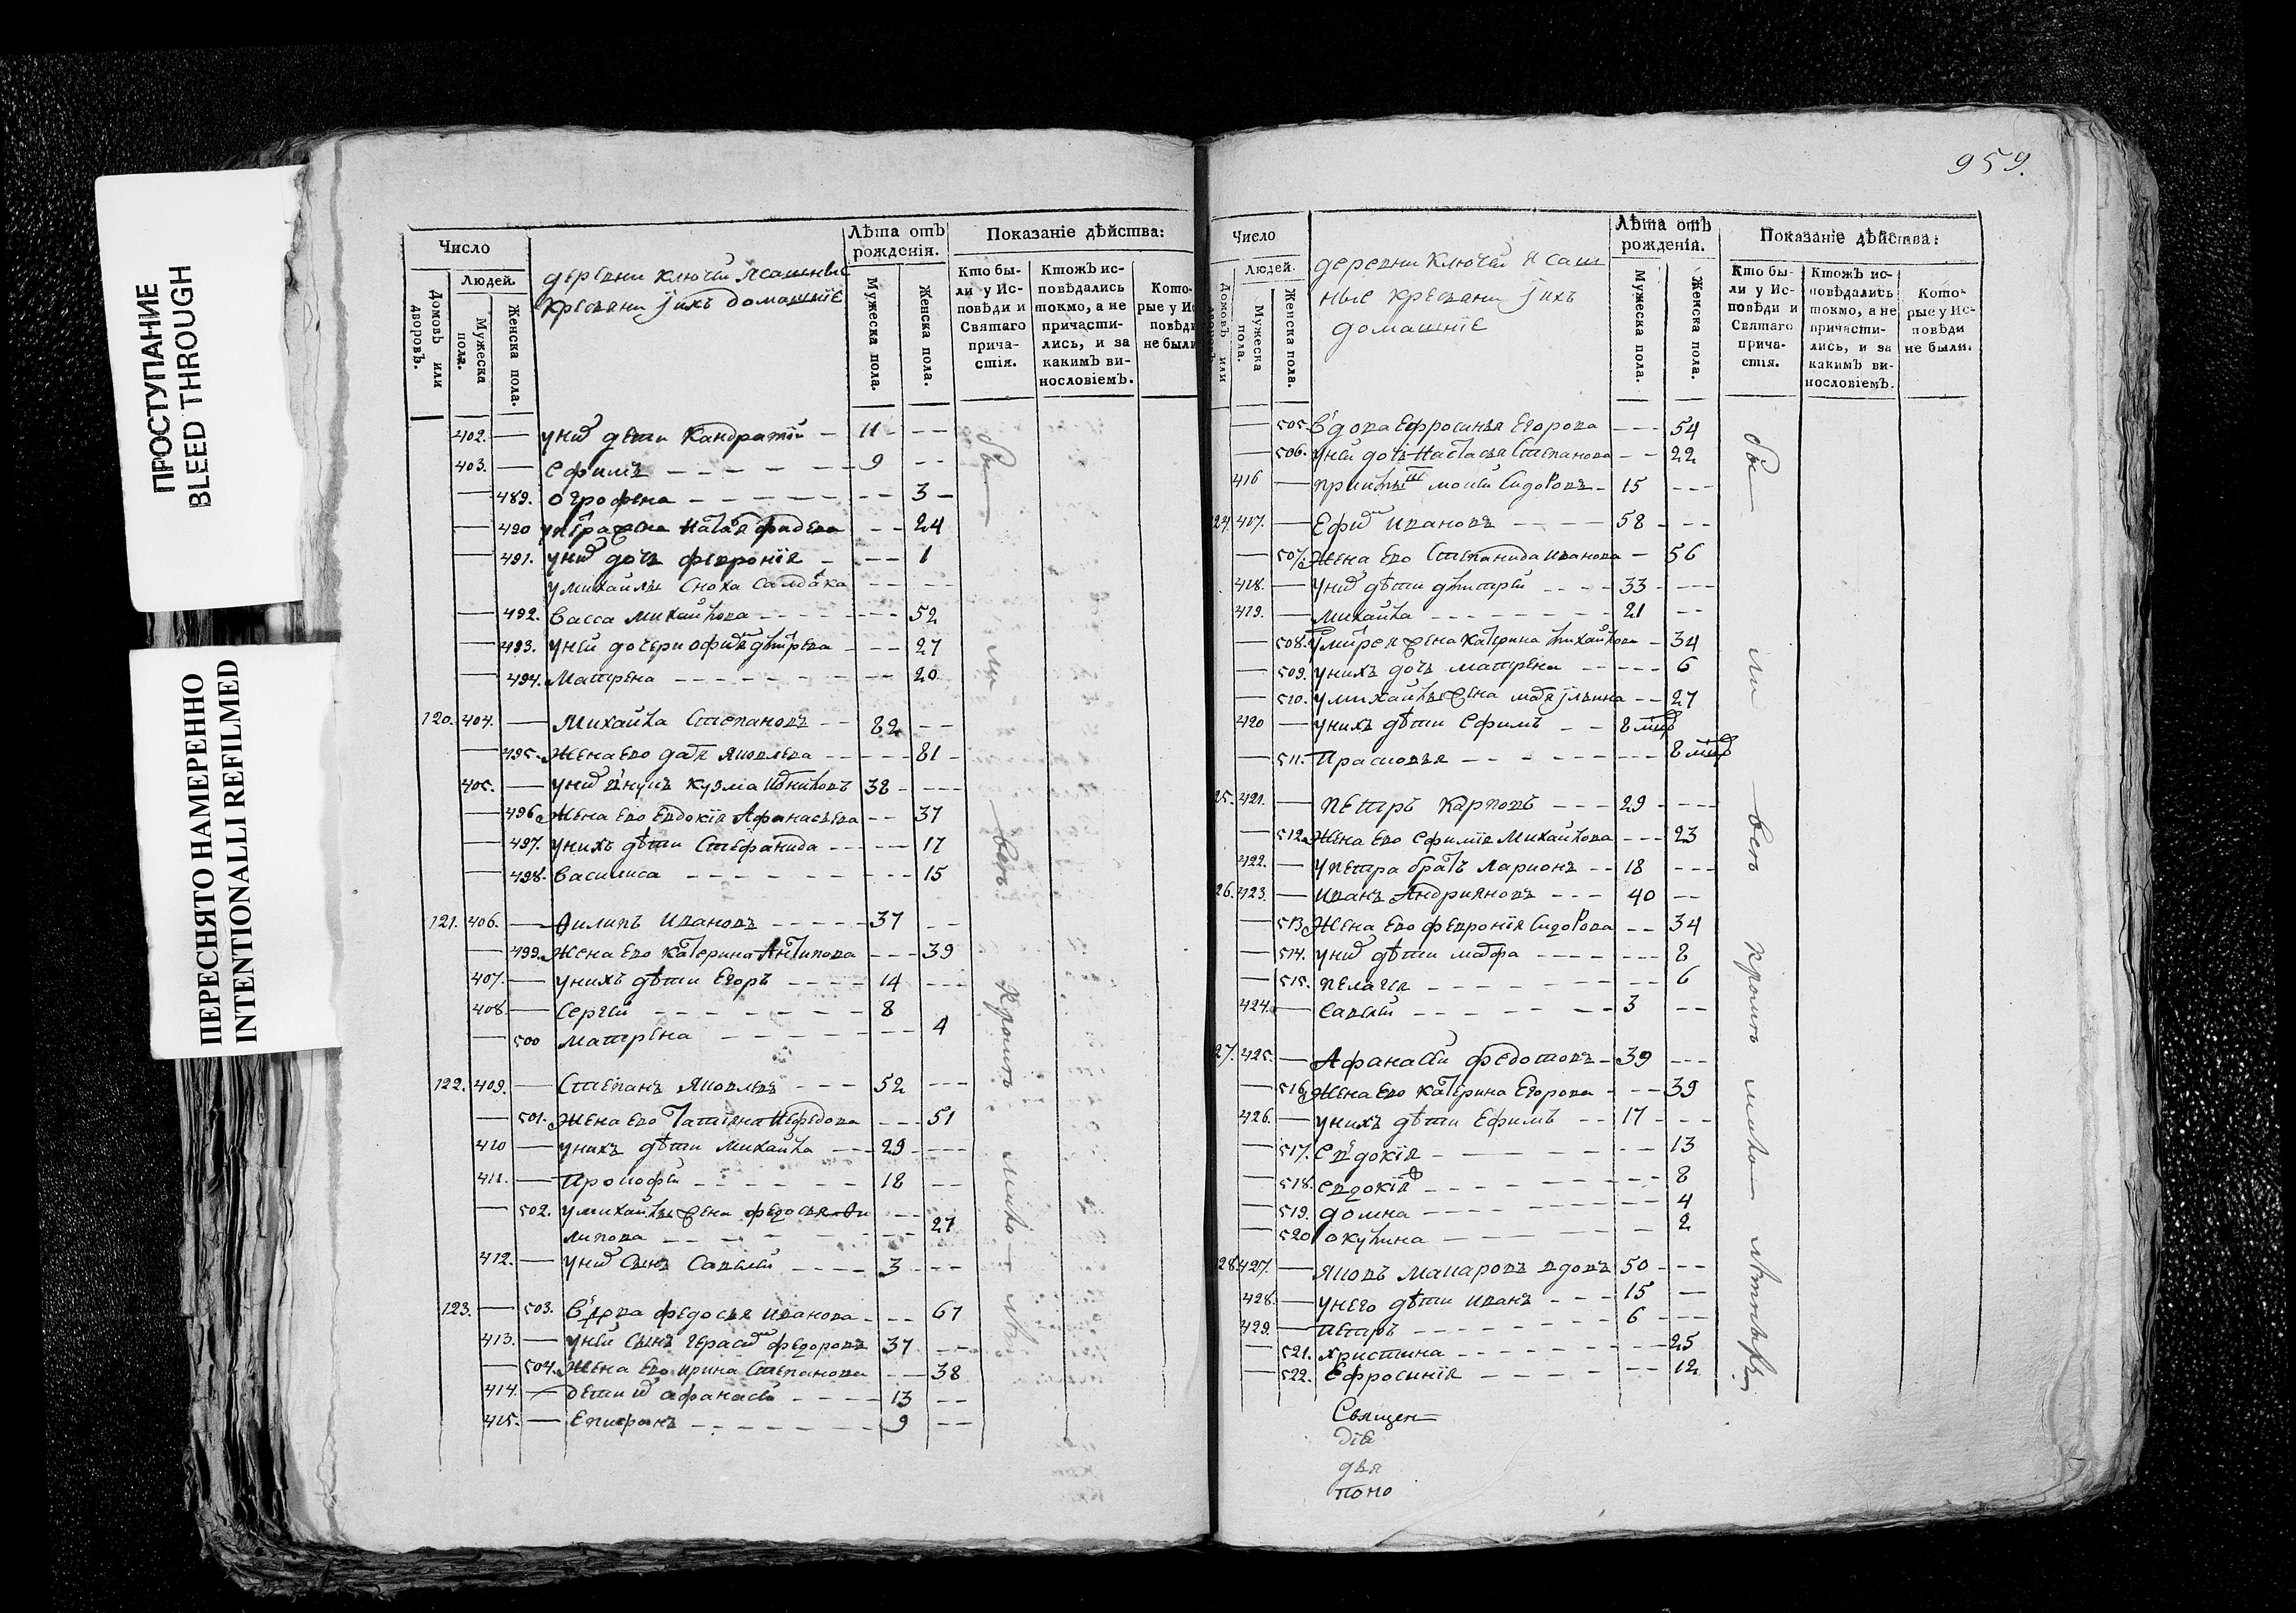 959.
ПРОСТУПАНИЕ
BLEED THROUGH
ПЕРЕСНЯТО НАМЕРЕННО
INTENTIONALLI REFILMED
Число
Людей.
Домовъ или дворовъ.
Мужеска пола.
Женска пола.
деревни ключей ясашные
крестяни ихъ домашніе
Лѣта отъ рожденія.
Мужеска пола.
Женска пола.
Показаніе дѣйства:
Кто бы-
ли у Ис-
повѣди и
Святаго
прича-
стія.
Ктожъ ис-
повѣдались
токмо, а не
причасти-
лись, и за
какимъ ви-
нословіемъ.
Кото-
рые у Ис
повѣди
не были
402. — у них дети Кандратий — 11 - - -
403. — Ефимъ - - - 9 - -
— 489. Огрофена - - - 3 -
— 490 24
— 491. у них дочь феврония - - - 1
у михайлы сноха салдатка - - -
— 492. Васса михайлова - - - 52
— 493. у ней дочери - - - 27
— 494. Матрена - - - 20
120. 404. — Михайла Степановъ - - 82 - -
— 495. Жена ево Яковлева - - - 81 -
405. — у них внукъ Кузма 38 - - -
— 496. Жена ево евдокия Афанасьева - - 37
— 497. у нихъ дѣти Стефанида - - - 17
— 498. Василиса - - - 15
121. 406. — Филипъ Ивановъ - - - 37 - -
— 499. Жена ево Катерина Антипова - - - 39
407. — у нихъ дѣти Егоръ - - - 14 - - -
408 — Сергей - - - 8
— 500 матрена - - - 4
122. 409. — Степанъ Яковлевъ - - - 52 - - -
— 501. Жена ево Татияна Нефедова - - - 51
410 — у нихъ дѣти Михайла - - - 29 - - -
411. — Прокофей - - - 18 - -
— 502. у михайлы жена федосья Фи
липова - - - 27
412. — у них сынъ Савелей - - - 3 - - -
123. — 503. Вдова федосья иванова - - - 67
413. — у ней сынъ герасим федоровъ 37 - - -
— 504. Жена ево ирина Степанова - - 38
414. — дети их афанасей - - - 13 - -
415. — Епифанъ - - - 9 - -
бы
ли
всѣ
Кромѣ
мало
лѣт
Число
Людей.
Домовъ или
Мужеска пола.
Женска пола.
деревни ключей ясаш
ные крестяни ихъ
домашніе
Лѣта отъ рожденія.
Мужеска пола.
Женска пола.
Показаніе дѣйства:
Кто бы-
ли у Ис-
повѣди и
Святаго
прича-
стія.
Ктожъ ис-
повѣдались
токмо, а не
причасти-
лись, и за
какимъ ви-
нословіемъ.
Кото-
рые у Ис-
повѣди
не были.
— 505. Вдова Ефросинья Егорова - - - 54
— 506. у ней дочь Настасья Степанова - - 22
416 — Сидоровъ - 15 - - -
24. 417. — Ефим ивановъ - - - 58 - - -
— 507. Жена ево Степанида иванова - 56
418. — у них дѣти дмитрей - - - 33 - - -
419. — михайла - - - 21 - -
— 508. жена катерина михайлова - 34
— 509. у нихъ дочь матрена - - - 6
— 510. у михайлы жена ильина - - 27
420 — у нихъ дѣти Ефимъ - - 8
— 511. Прасковья - - - 8
25. 421. — Петръ карповъ - - - 29 - - -
— 512. Жена ево Ефимия Михайлова - - - 23
422. — у петра братъ Ларионъ - - 18 - - -
26. 423. — Иванъ Андрияновъ - - - 40 - -
— 513. Жена ево феврония Сидорова - - 34
— 514. у них дѣти марфа - - - 8
— 515. Пелагея - - - 6
424. — Савелей - - - 3 - -
27. 425. — Афанасей федотовъ - 39 - - -
— 516. Жена ево катерина Егорова - - - 39
426. — у нихъ дѣти Ефимъ - - 17 - - -
— 517. Евдокия - - - 13
— 518. Евдокия - - - 8
— 519. домна - - - 4
— 520 окулина - - - 2
28. 427. — Яковъ макаровъ вдовъ 50 - - -
428. — у него дѣти иванъ - - - 15 - -
429. — петръ - - - 6 - - -
— 521. христина - - - 25
— 522. Ефросиния - - - 12
бы
ли
всѣ
кромѣ
мало
лѣтнѣхъ
Священ=
діа
дья
поно